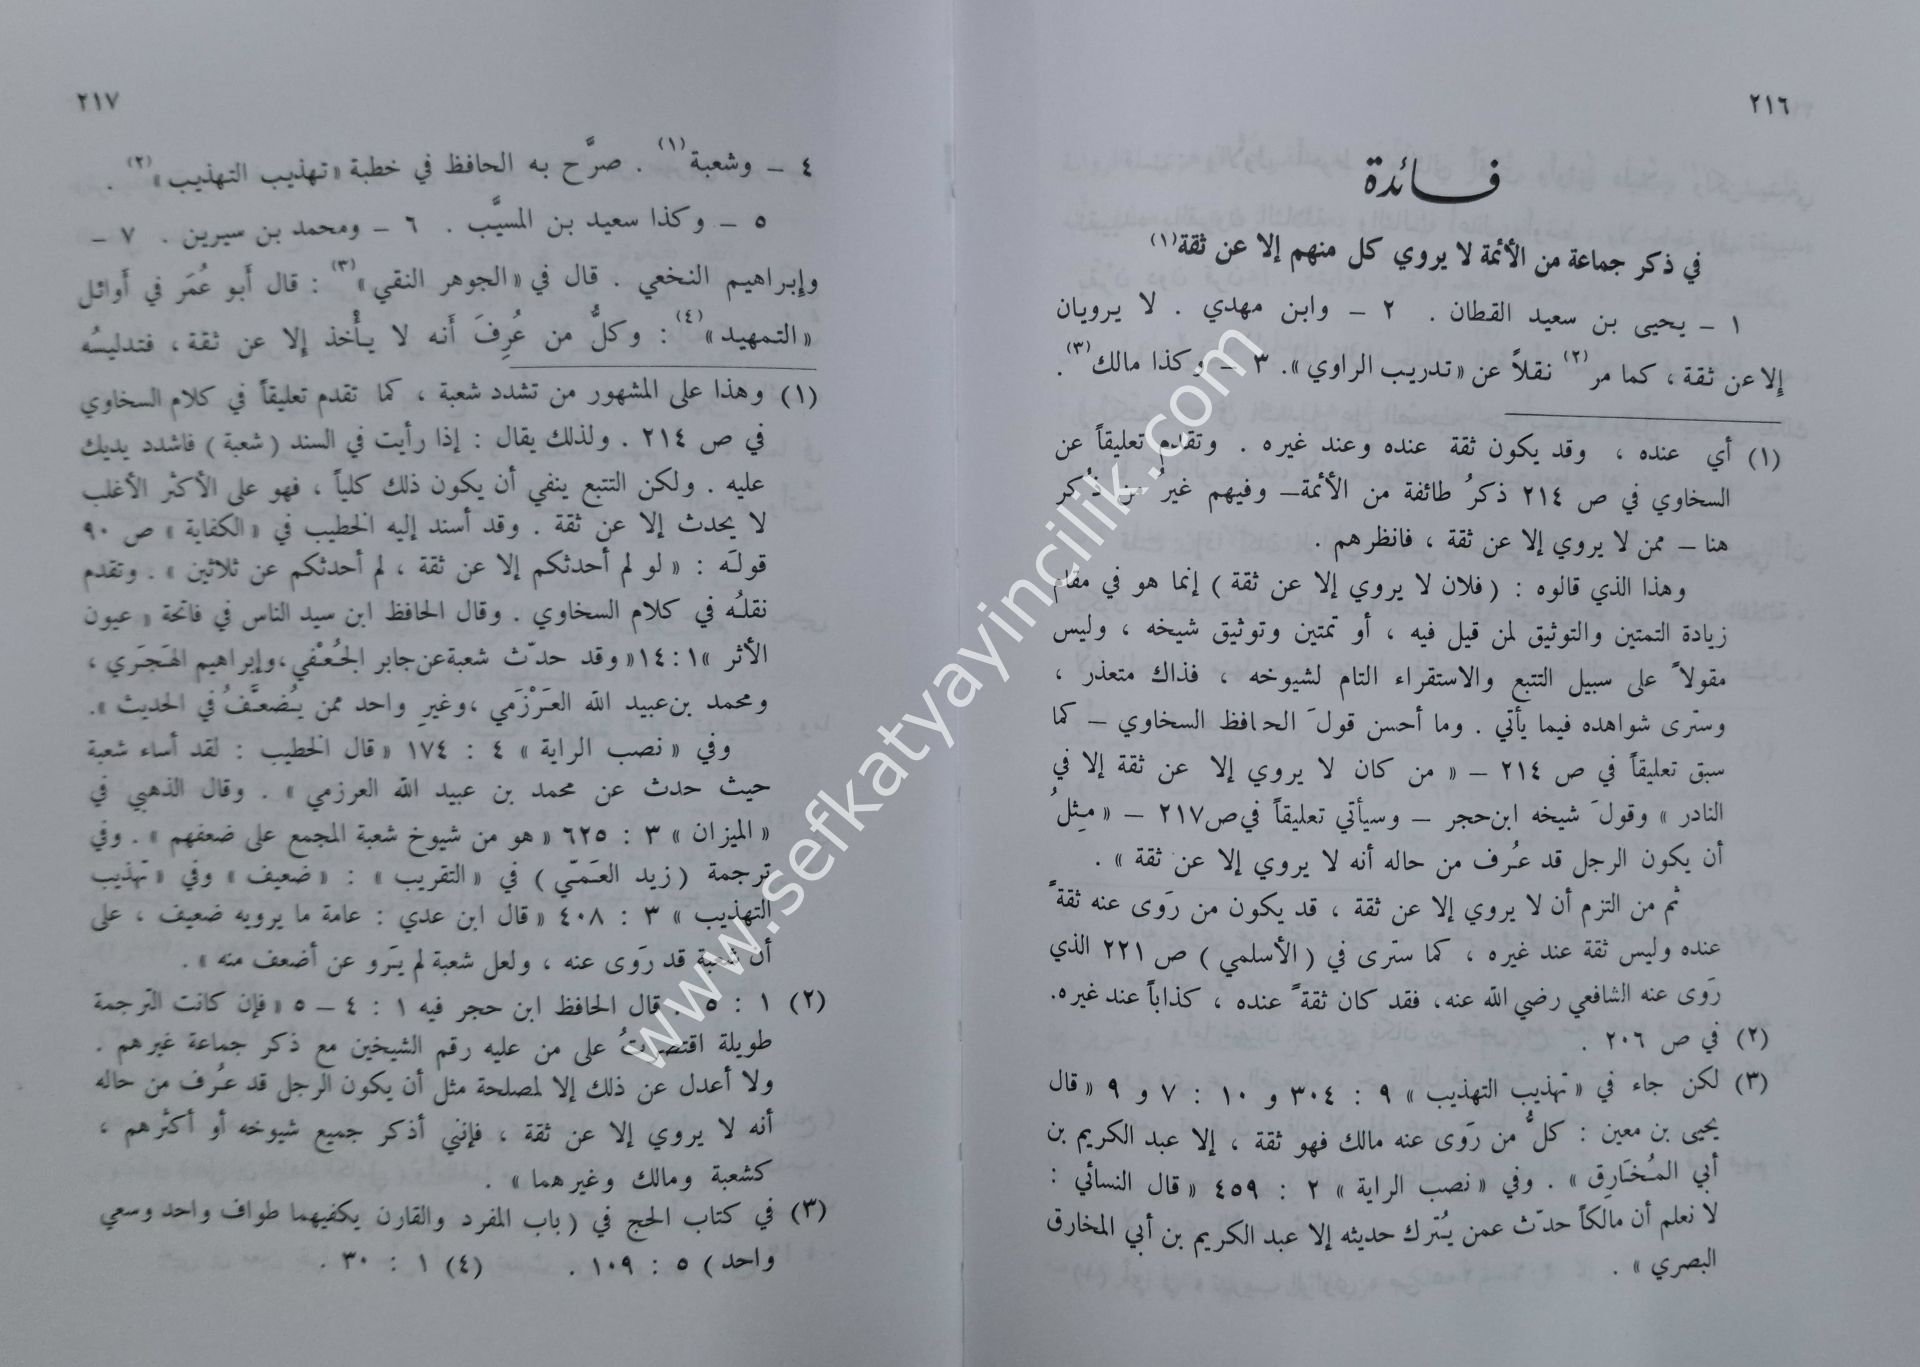 ٢١٦
فائدة
في ذكر جماعة من الأئمة لا يروي كل منهم إلا عن ثقة(١)
١ ـ يحيى بن سعيد القطان . ٢ ـ وابن مهدي . لا يرويان
إلا عن ثقة ، كما مر(٢) نقلاً عن «تدريب الراوي». ٣ ـ وكذا مالك(٣) .
(١) أي عنده ، وقد يكون ثقة عنده وعند غيره . وتقدم تعليقاً عن
السخاوي في ص ٢١٤ ذكرُ طائفة من الأئمة ـ وفيهم غيرُ من ذُكر
هنا ـ ممن لا يروي إلا عن ثقة ، فانظرهم .
وهذا الذي قالوه : ( فلان لا يروي إلا عن ثقة ) إنما هو في مقام
زيادة التمتين والتوثيق لمن قيل فيه ، أو تمتين وتوثيق شيخه ، وليس
مقولاً على سبيل التتبع والاستقراء التام لشيوخه ، فذاك متعذر ،
وسترى شواهده فيما يأتي . وما أحسن قولَ الحافظ السخاوي ـ كما
سبق تعليقاً في ص ٢١٤ ـ « من كان لا يروي إلا عن ثقة إلا في
النادر » وقولَ شيخه ابن حجر ـ وسيأتي تعليقاً في ص٢١٧ ـ « مِثلُ
أن يكون الرجل قد عُرف من حاله أنه لا يروي إلا عن ثقة » .
ثم من التزم أن لا يروي إلا عن ثقة ، قد يكون من رَوى عنه ثقةً
عنده وليس ثقة عند غيره ، كما سترى في ( الأسلمي ) ص ٢٢١ الذي
رَوى عنه الشافعي رضي الله عنه، فقد كان ثقةً عنده ، كذاباً عند غيره.
(٢) في ص ٢٠٦ .
(٣) لكن جاء في « تهذيب التهذيب » ٩ : ٣٠٤ و ١٠ : ٧ و ٩ « قال
يحيى بن معين : كلُّ من رَوى عنه مالك فهو ثقة ، إلا عبد الكريم بن
أبي المُخَارِق » . وفي « نصب الراية » ٢ : ٤٥٩ « قال النسائي :
لا نعلم أن مالكاً حدّث عمن يُترك حديثه إلا عبد الكريم بن أبي المخارق
البصري » .
٢١٧
٤ ـ وشعبة(١) . صرَّح به الحافظ في خطبة «تهذيب التهذيب»(٢) .
٥ ـ وكذا سعيد بن المسيَّب . ٦ ـ ومحمد بن سيرين . ٧ ـ
وإبراهيم النخعي . قال في «الجوهر النقي»(٣) : قال أبو عُمَر في أوائل
«التمهيد»(٤) : وكلُّ من عُرِفَ أنه لا يأخذ إلا عن ثقة ، فتدليسُه
(١) وهذا على المشهور من تشدد شعبة ، كما تقدم تعليقاً في كلام السخاوي
في ص ٢١٤ . ولذلك يقال : إذا رأيت في السند ( شعبة ) فاشدد يديك
عليه . ولكن التتبع ينفي أن يكون ذلك كلياً ، فهو على الأكثر الأغلب
لا يحدث إلا عن ثقة . وقد أسند إليه الخطيب في « الكفاية » ص ٩٠
قولَه : « لو لم أحدثكم إلا عن ثقة ، لم أحدثكم عن ثلاثين » . وتقدم
نقلُه في كلام السخاوي . وقال الحافظ ابن سيد الناس في فاتحة « عيون
الأثر »١ :١٤« وقد حدّث شعبة عن جابر الجُعْفي ،وإبراهيم الهَجَري ،
ومحمد بن عبيد الله العَرْزَمي ،وغيرِ واحد ممن يُضعَّفُ في الحديث ».
وفي « نصب الراية » ٤ : ١٧٤ « قال الخطيب : لقد أساء شعبة
حيث حدث عن محمد بن عبيد الله العرزمي » . وقال الذهبي في
« الميزان » ٣ : ٦٢٥ « هو من شيوخ شعبة المجمع على ضعفهم » . وفي
ترجمة ( زيد العَمّي ) في « التقريب » : « ضعيف » وفي « تهذيب
التهذيب » ٣ : ٤٠٨ « قال ابن عدي : عامة ما يرويه ضعيف ، على
أن شعبة قد رَوى عنه ، ولعل شعبة لم يَرو عن أضعف منه » .
(٢) ١ : ٥ . قال الحافظ ابن حجر فيه ١ : ٤ ـ ٥ « فإن كانت الترجمة
طويلة اقتصرتُ على من عليه رقم الشيخين مع ذكر جماعة غيرهم .
ولا أعدل عن ذلك إلا لمصلحة مثل أن يكون الرجل قد عُرف من حاله
أنه لا يروي إلا عن ثقة ، فإنني أذكر جميع شيوخه أو أكثرهم ،
كشعبة ومالك وغيرهما » .
(٣) في كتاب الحج في ( باب المفرد والقارن يكفيهما طواف واحد وسعي
واحد ) ٥ : ١٠٩ . (٤) ١ : ٣٠ .
www.sefkatyayincilik.com